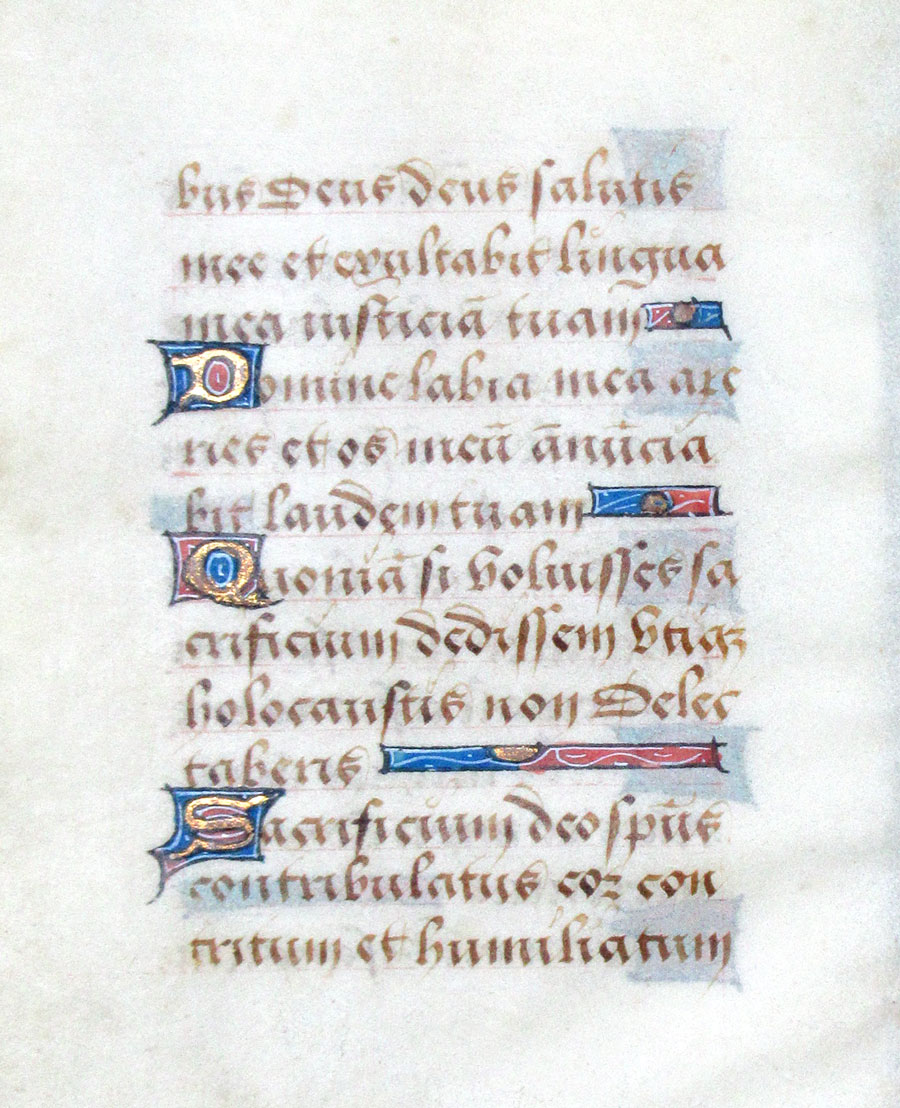 bus Deus deus salutis
mee et exultabit lingua
mea iusticiā tuam
Domine labia mea ape
ries et os meū ānūcia
bit laudem tuam
Quoniā si voluisses sa
crificium dedissem vtiqꝫ
holocaustis non Delec
taberis
Sacrificium deo spūs
contribulatus coꝛ con
tritum et humiliatum